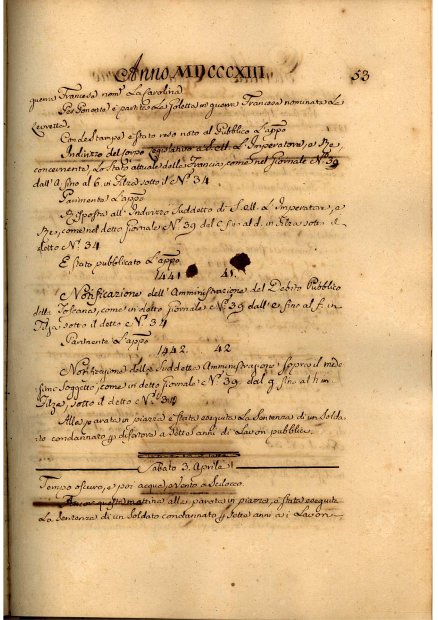 Anno MDCCCXIII. 53
guerra Francesa nom.a La Carolina
Per Gonoeta è partita La Goletta in guerra Francesa nominata La
Levretta.
Con le stampe è stato reso noto al Pubblico L'appo
Indirizo del Corpo Legislativo a S. M. L'Imperatore, e Re,
concernente, Lo stato attuale della Francia, come nel giornale N.o 39
dall' a. sino al b. in Filza sotto il N.o 34
Parimente L'appo
Risposta all' Indirizzo Suddetto di S. M. L'Imperatore, e
Re, come nel detto giornale N.o 39 del c. sino al d. in Filza sotto il
detto N.o 34
E stato pubblicato L'appo
1441 41.
Notificazione dell' Amministrazione del Debito Pubblico
della Toscana, come in detto giornale N.o 39 dall' e. sino al f. in
Filza sotto il detto N.o 34
Parimente L'appo
1442. 42
Notificazione della Suddetta Amministrazione sopra il mede
simo Soggetto, come in detto giornale N.o 39. dal g. sino al h in
Filza, sotto il detto N.o 34
Alla parata in piazza è stata eseguita La Sentenza di un Solda
to condannato p desertore a Sette anni di Lavori pubblici.
Sabato 3. Aprile
Tempo oscuro, e poi acqua, e Vento a Scilocco.
Ancor questa mattina alla parata in piazza, è stata eseguita
La Sentenza di un Soldato condannato p Sette anni a i Lavori